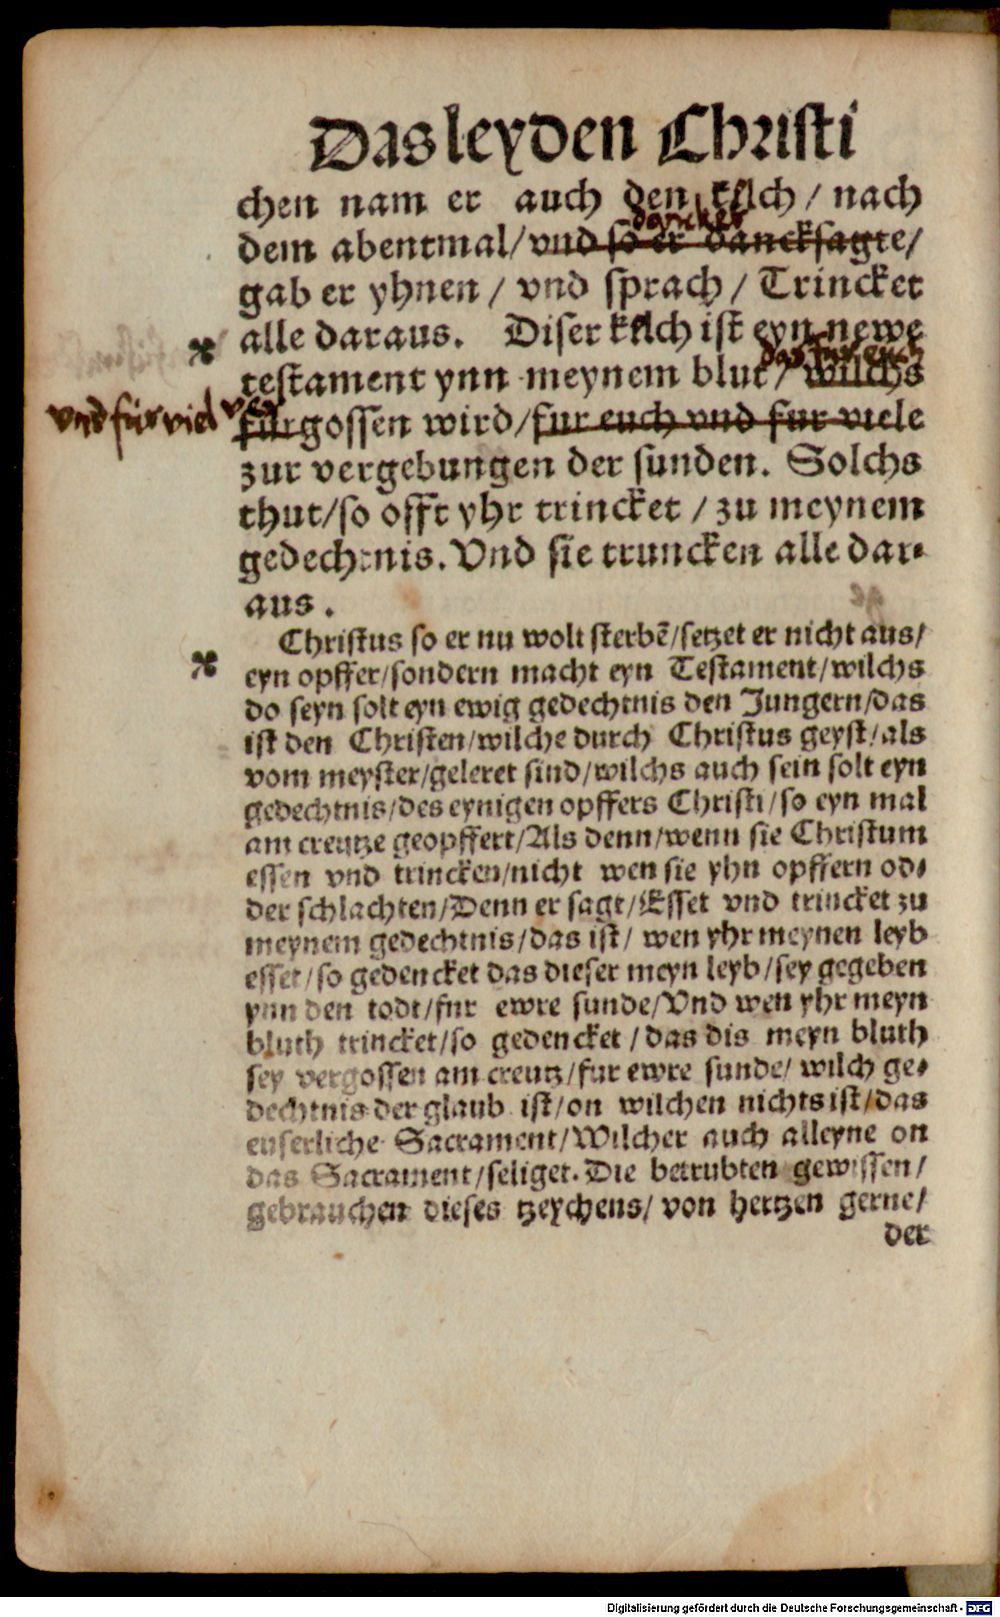 Das leyden Christi
chen nam er auch den kelch / nach
dancket
dem abentmal/vnd so er dancksagte/
gab er yhnen / vnd sprach / Trincket
alle daraus. Diser kelch ist eyn newe
das fur euch
testament ynn meynem blut/ wilchs
vnd für viel ver
furgossen wird/fur euch vnd fur viele
zur vergebungen der sunden. Solchs
thut/so offt yhr trincket / zu meynem
gedechtnis. Vnd sie truncken alle dar⸗
aus.
Christus so er nu wolt sterbē/setzet er nicht aus/
eyn opffer/sondern macht eyn Testament/wilchs
do seyn solt eyn ewig gedechtnis den Jungern/das
ist den Christen/wilche durch Christus geyst/als
vom meyster/geleret sind/wilchs auch sein solt eyn
gedechtnis/des eynigen opffers Christi/so eyn mal
am creutze geopffert/Als denn/wenn sie Christum
essen vnd trincken/nicht wen sie yhn opffern od⸗
der schlachten/Denn er sagt/Esset vnd trincket zu
meynem gedechtnis/das ist/ wen yhr meynen leyb
esset/so gedencket das dieser meyn leyb/sey gegeben
ynn den todt/fur ewre sunde/Vnd wen yhr meyn
bluth trincket/so gedencket / das dis meyn bluth
sey vergossen am creutz/fur ewre sunde/ wilch ge⸗
dechtnis der glaub ist/on wilchen nichts ist/das
euserliche Sacrament/Wilcher auch alleyne on
das Sacrament/seliget. Die betrubten gewissen/
gebrauchen dieses tzeychens/ von hertzen gerne/
der
Digitalisierung gefördert durch die Deutsche Forschungsgemeinschaft - DFG